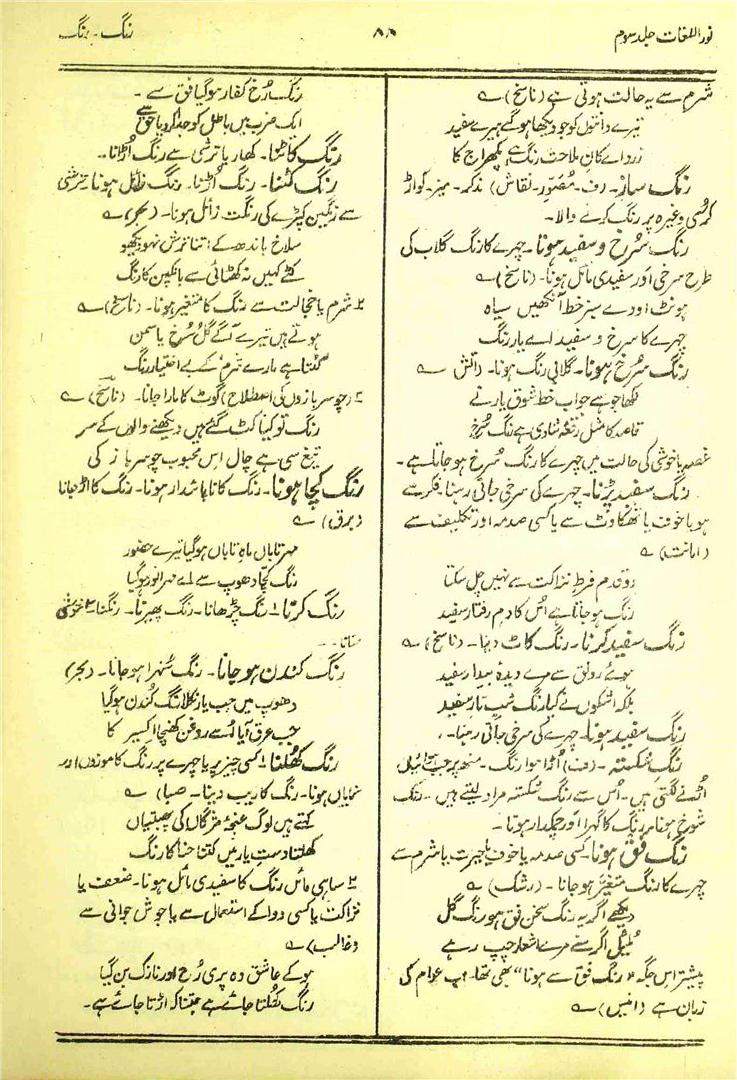 نور اللغات جلد سوم
۸۸
رنگ - رنگ
شرم سے یہ حالت ہوتی ہے (ناسخ) ؎
تیرے دانتوں کو جو دیکھا ہوگے ہیرے سفید
زرد اے کان ملاحت رنگ ہے پکھراج کا
رنگ ساز۔ (ف۔ مُصَوِّر۔ نقاش) مذکر۔ میز۔ کواڑ
کرسی وغیرہ پر رنگ کرنے والا۔
رنگ سُرخ و سفید ہونا۔ چہرے کا رنگ گلاب کی
طرح سرخی اور سفیدی مائل ہونا۔ (ناسخ) ؎
ہونٹ اودے سبز خط آنکھیں سیاہ
چہرے کا سرخ و سفید اے یار رنگ
رنگ سُرخ ہونا۔ گلابی رنگ ہونا۔ (آتش) ؎
لکھا جو ہے جواب خط شوق یار نے
قاصد کا مثل رقعہ شادی ہے رنگ سُرخ
غصہ یا خوشی کی حالت میں چہرے کا رنگ سُرخ ہو جاتا ہے۔
رنگ سفید پڑنا۔ چہرے کی سرخی جاتی رہنا۔ فکر سے
ہو یا خوف یا تھکاوٹ سے یا کسی صدمہ اور تکلیف سے
(امانت) ؎
دو قدم فرط نزاکت سے نہیں چل سکتا
رنگ ہو جاتا ہے اُس کا دمِ رفتار سفید
رنگ سفید کرنا۔ رنگ کاٹ دینا۔ (ناسخ) ؎
ہوئے رونق سے مرے دیدۂ بیدار سفید
بلکہ اشکوں نے کیا رنگ شبِ تار سفید
رنگ سفید ہونا۔ چہرے کی سرخی جاتی رہنا۔
رنگ شکستہ۔ (ف) اُڑا ہوا رنگ۔ منھ پر جب ہوائیاں
اُڑنے لگتی ہیں۔ اُس سے رنگ شکستہ مراد لیتے ہیں۔ رنگ
شوخ ہونا۔ رنگ کا گہرا اور چمکدار ہونا۔
رنگ فق ہونا۔ کسی صدمہ یا خوف یا حیرت یا شرم سے
چہرے کا رنگ متغیر ہو جانا۔ (رشک) ؎
دیکھے اگر یہ رنگ سخن فق ہو رنگ گل
بُلبُل اگر سنے مرے اشعار چپ رہے
پیشتر اس جگہ "رنگ فق سے ہونا" بھی تھا۔ اب عوام کی
زبان ہے (انیس) ؎
رنگ رُخ کفار ہوگیا فق سے ۔
ایک ضرب میں باطل کو جدا کر دیا حق سے
رنگ کاٹنا۔ کھار یا ترشی سے رنگ اُڑانا۔
رنگ کٹنا۔ رنگ اُڑنا۔ رنگ زائل ہونا۔ ترشی
سے رنگین کپڑے کی رنگت زائل ہونا۔ (بحر) ؎
سلاخ باندھ کے اتنا ترش نہو دیکھو
کٹے کہیں نہ کھٹائی سے بانکپن کا رنگ
۲ شرم یا خجالت سے رنگ کا متغیر ہونا۔ (ناسخ) ؎
ہوتے ہیں تیرے آگے گل سُرخ یاسمن
کٹتا ہے مارے شرم کے بے اختیار رنگ
۳ (چوسر بازوں کی اصطلاح) گوٹ کا مارا جانا۔ (ناسخ) ؎
رنگ تو کیا کٹ گئے ہیں دیکھنے والوں کے سر
تیغ سی ہے چال اس محبوب چوسر باز کی
رنگ کچا ہونا۔ رنگ کا ناپائدار ہونا۔ رنگ کا اڑ جانا
(برق) ؎
مہر تاباں ماہ تاباں ہوگیا تیرے حضور
رنگ کچا دھوپ سے اے مہر انور ہوگیا
رنگ کرنا ۱ رنگ چڑھانا۔ رنگ پھیرنا۔ رنگنا ۲ خوشی
منانا۔
رنگ کندن ہو جانا۔ رنگ سُنہرا ہو جانا۔ (بحر)
دھوپ میں جب یار نکلا رنگ کُندن ہوگیا
جب عرق آیا اُسے روغن کھنچا اکسیر کا
رنگ کُھلنا ۱ کسی چیز پر یا چہرے پر رنگ کا موزوں اور
نمایاں ہونا۔ رنگ کا زیب دینا۔ (صبا) ؎
کہتے ہیں لوگ غنچۂ مژگاں کی پھبتیاں
کھلتا دستِ یار میں کتنا حنا کا رنگ
۲ سیاہی مائل رنگ کا سفیدی مائل ہونا۔ ضعف یا
نزاکت یا کسی دوا کے استعمال سے یا جوش جوانی سے
(غالب) ؎
ہو کے عاشق وہ پری رُخ اور نازک بن گیا
رنگ کُھلتا جائے ہے جتنا کہ اڑتا جائے ہے۔